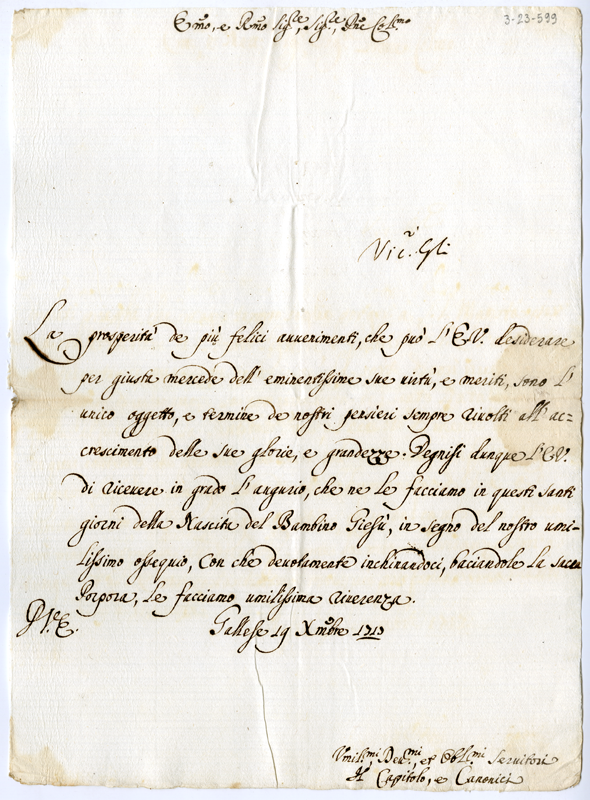 3-23-599
Emo, e Rmo Sigre, Sigre, Pne Colmo
Vicr. Gli
La prosperità de più felici avvenimenti, che può L'E.V. desiderare
per giusta mercede dell' eminentissime sue virtù, e meriti, sono l'
unico oggetto, e termine de nostri pensieri sempre rivolti all' ac-
crescimento delle sue glorie, e grandezze. Degnisi dunque L'E.V.
di ricevere in grado l' augurio, che ne Le facciamo in questi santi
giorni della Nascita del Bambino Giesù, in segno del nostro umi-
lissimo ossequio, con che devotamente inchinandoci, baciandole La sacra
Porpora, Le facciamo umilissima riverenza.
Gallese 19 Xmbre 1713
Umilmi, Devmi, et Oblmi Servitori
Il Capitolo, e Canonici